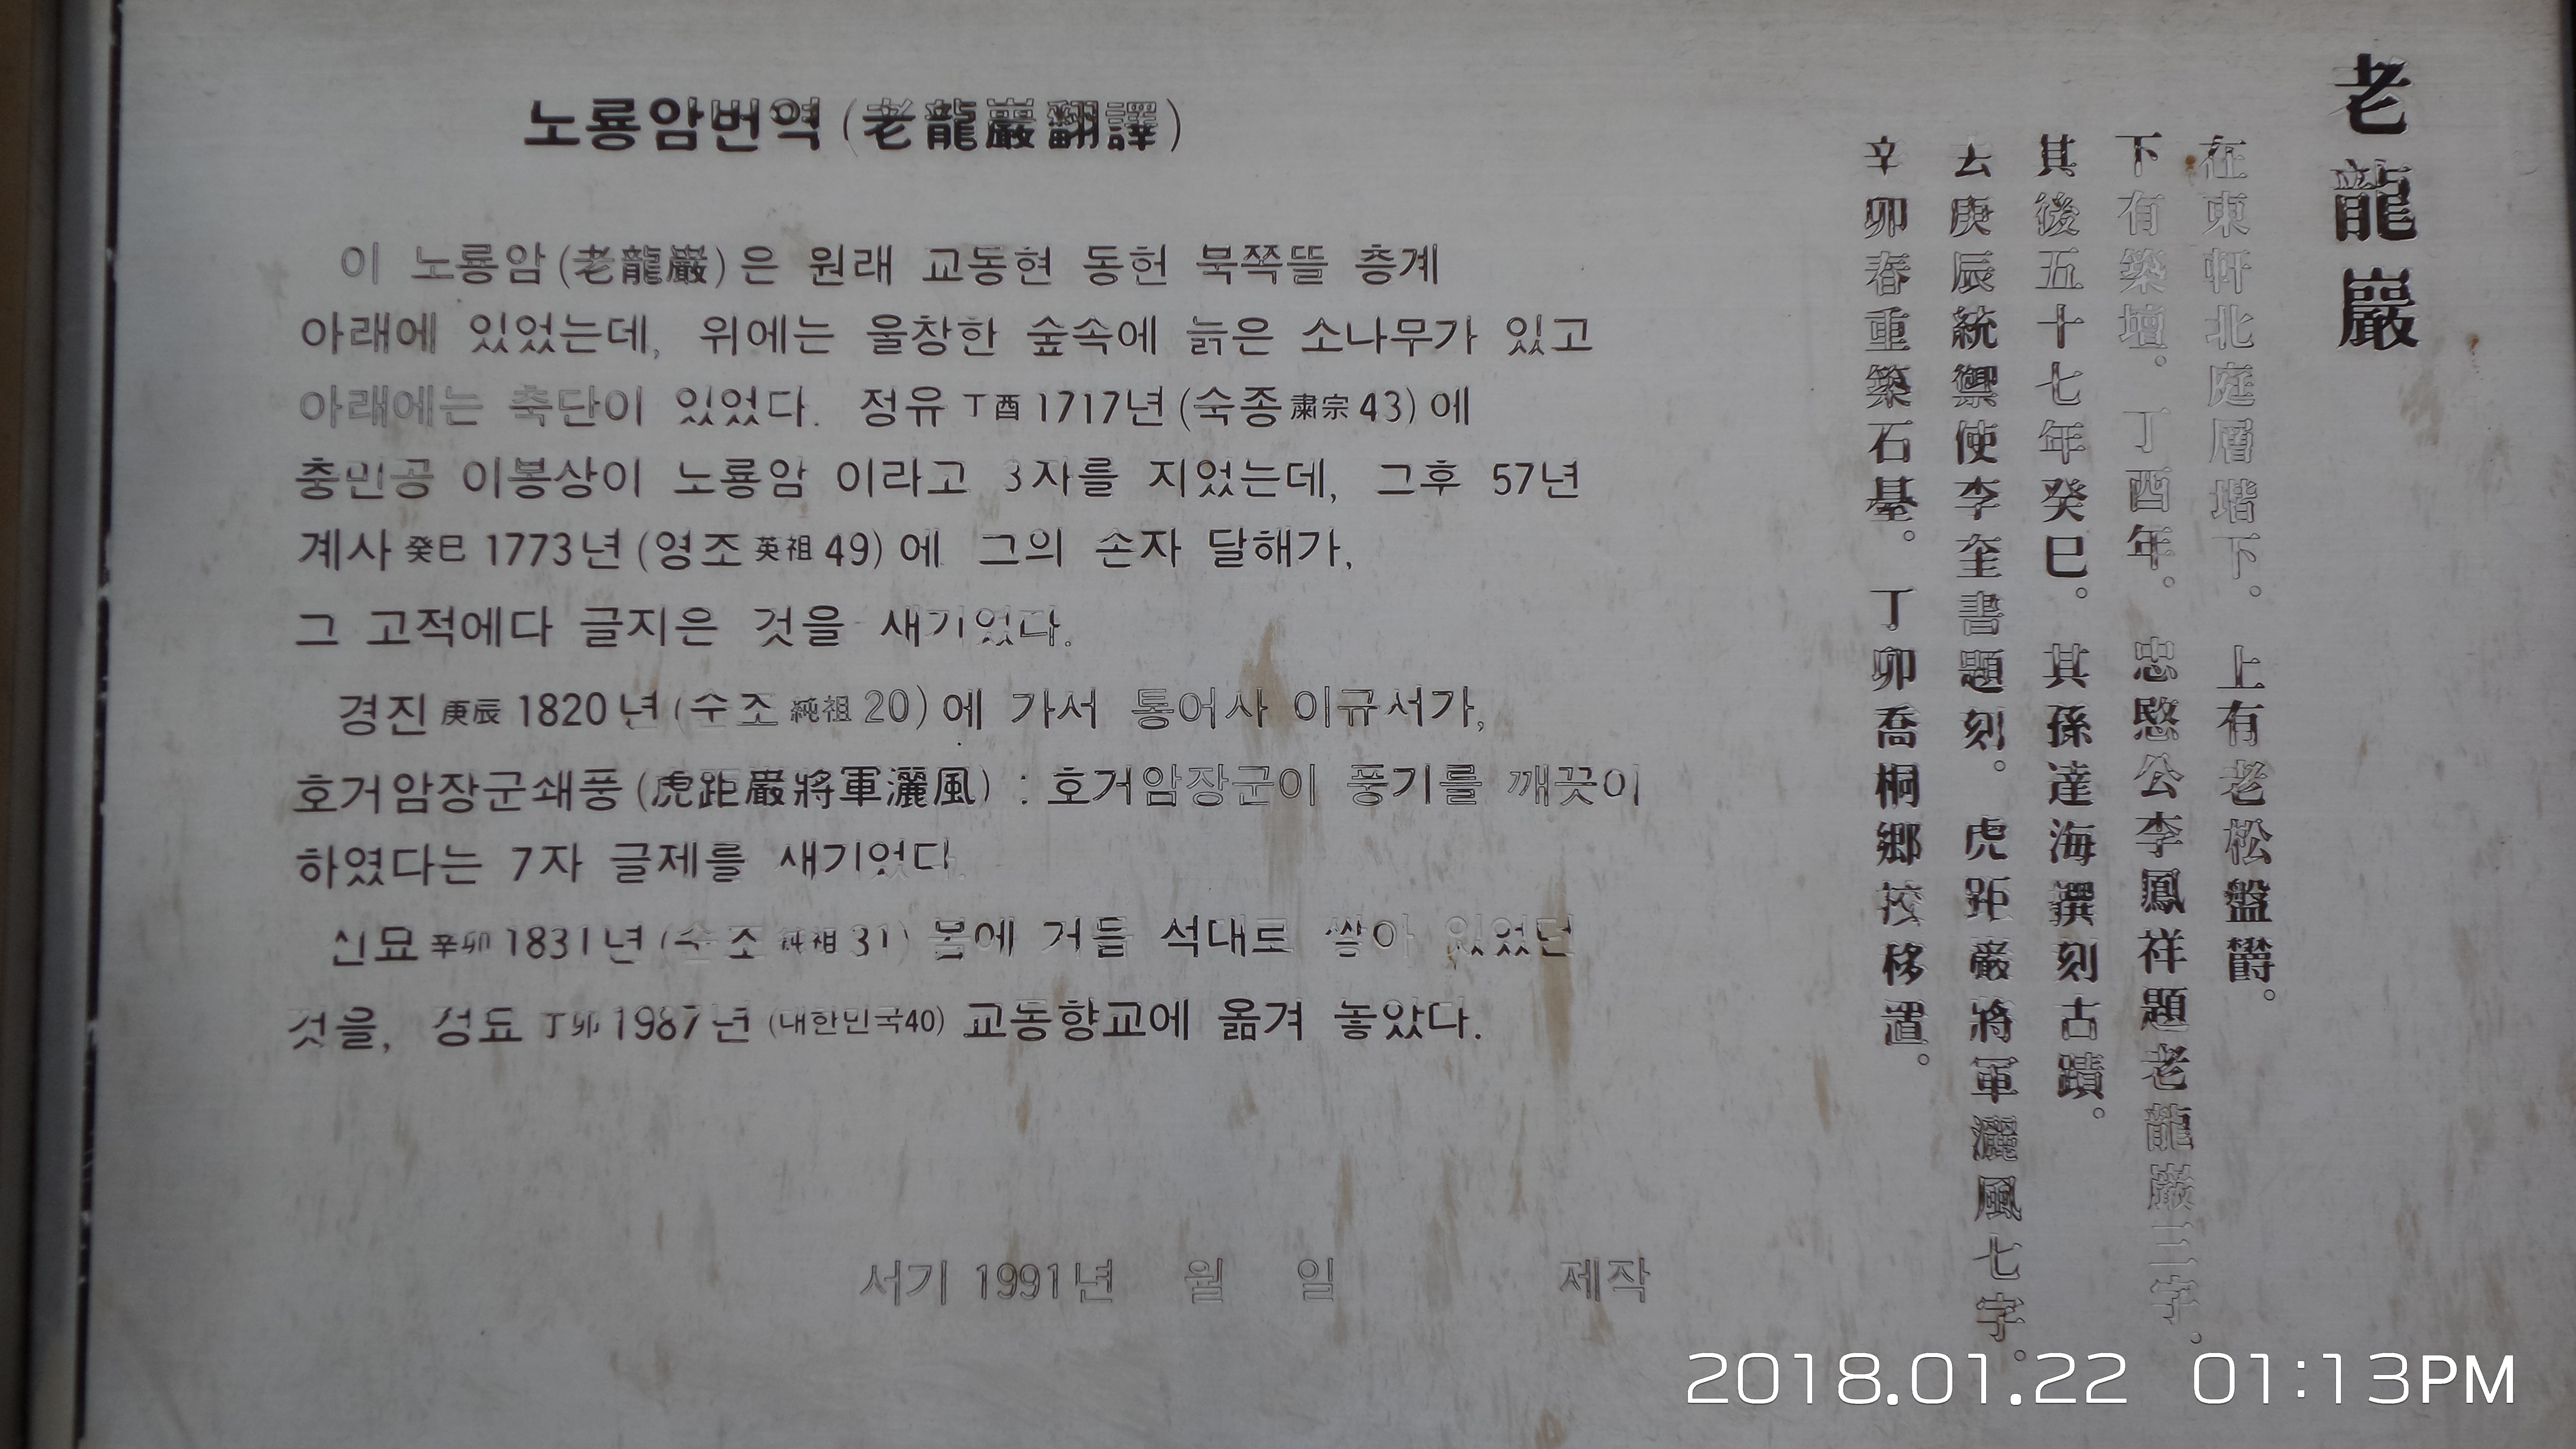 노룡암번역(老龍巖翻譯)
이 노룡암(老龍巖)은 원래 교동현 동헌 북쪽뜰 층계
아래에 있었는데, 위에는 울창한 숲속에 늙은 소나무가 있고
아래에는 축단이 있었다. 정유 丁酉 1717년(숙종 肅宗 43)에
충민공 이봉상이 노룡암 이라고 3자를 지었는데, 그후 57년
계사 癸巳 1773년(영조 英祖 49)에 그의 손자 달해가,
그 고적에다 글지은 것을 새기었다.
경진 庚辰 1820년(순조 純祖 20)에 가서 통어사 이규서가,
호거암장군쇄풍(虎距巖將軍灑風) : 호거암장군이 풍기를 깨끗이
하였다는 7자 글제를 새기었다.
신묘 辛卯 1831년(순조 純祖 31) 봄에 거듭 석대로 쌓아 있었던
것을, 정묘 丁卯 1987년(대한민국40) 교동향교에 옮겨 놓았다.
서기 1991년 월 일 제작
老龍巖
在東軒北庭層堦下。上有老松盤欝。
下有築壇。丁酉年。忠愍公李鳳祥題老龍巖三字。
其後五十七年癸巳。其孫達海撰刻古蹟。
去庚辰統禦使李奎書題刻。虎距巖將軍灑風七字。
辛卯春重築石㙜。丁卯喬桐鄉校移置。
2018.01.22 01:13PM